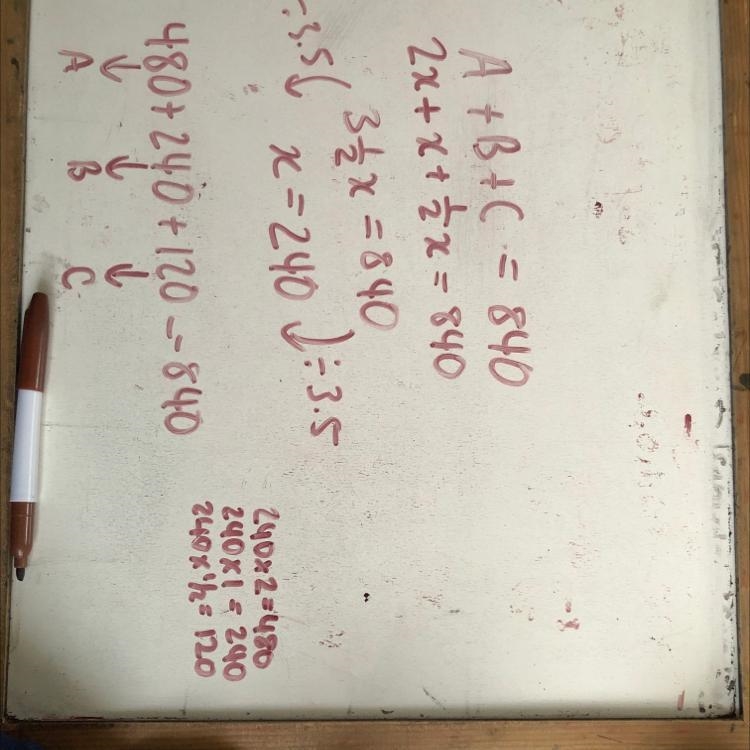 A + B + C = 840
2x + x + ½x = 840
3½x = 840
÷3.5 x = 240 ÷3.5
480 + 240 + 120 = 840
A B C
240x2=480
240x1=240
240x½=120